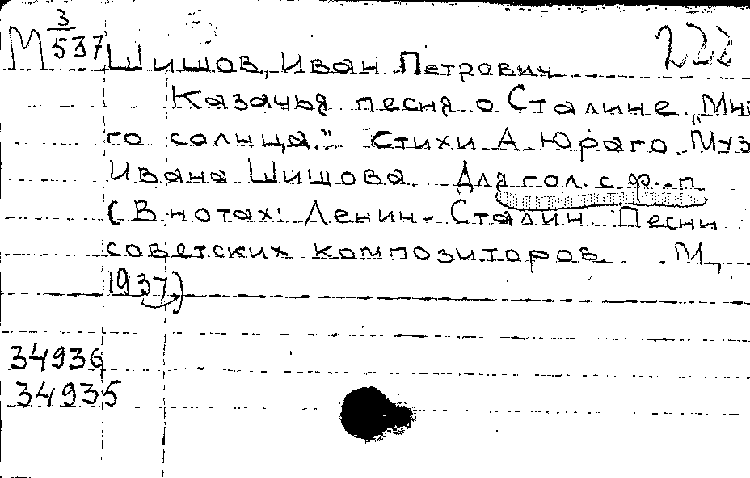 М 3/537 Шишов, Иван Петрович 222
Казачья песня о Сталине. „Мно
го солнца." Стихи А. Юраго. Муз
Ивана Шишова. Для гол. с. ф.-п
(В нотах: Ленин-Сталин. Песни
советских композиторов. М,
1937)
34936
34935